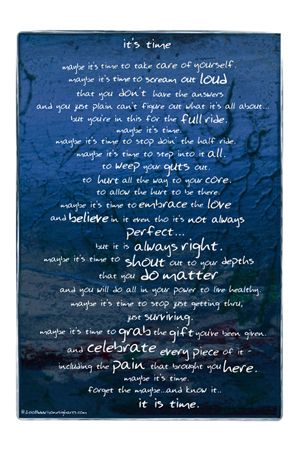 it's time
maybe it's time to take care of yourself.
maybe it's time to scream out loud
that you don't have the answers
and you just plain can't figure out what it's all about...
but you're in this for the full ride.
maybe it's time.
maybe it's time to stop doin' the half ride.
maybe it's time to step into it all.
to weep your guts out.
to hurt all the way to your core.
to allow the hurt to be there.
maybe it's time to embrace the love
and believe in it even tho it's not always
perfect...
but it is always right.
maybe it's time to shout out to your depths
that you do matter
and you will do all in your power to live healthy.
maybe it's time to stop just getting thru,
just surviving.
maybe it's time to grab the gift you've been given.
and celebrate every piece of it -
including the pain that brought you here.
maybe it's time.
forget the maybe...and know it..
it is time.